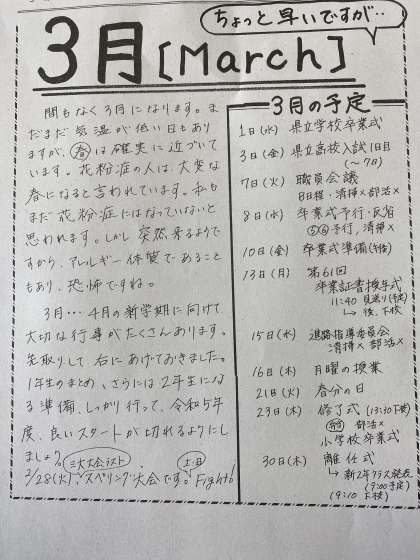 ちょっと早いですが…
3月[March]
間もなく3月になります。ま
だまだ気温が低い日もあり
ますが、春は確実に近づいて
います。花粉症の人は、大変な
春になると言われています。私も
まだ花粉症にはなっていないと
思われます。しかし突然来るようで
すから、アレルギー体質であること
もあり、恐怖ですね。
3月…4月の新学期に向けて
大切な行事がたくさんあります。
先取りして右にあげておきました。
1年生のまとめ、さらには2年生にな
る準備、しっかり行って、令和5年
度、良いスタートが切れるようにし
ましょう。
三大大会ラスト
2/28(火)、スペリング大会です。Fight!
3月の予定
1日(水) 県立学校卒業式
3日(金) 県立高校入試1日目
(〜7日)
7日(火) 職員会議
B日程・清掃×部活×
8日(水) 卒業式予行・反省
⑤⑥予行, 清掃×
10日(金) 卒業式準備(午後)
13日(月) 第61回
卒業証書授与式
11:40 見送り(予定)
↳後、下校
15日(水) 進路指導委員会
清掃×部活×
16日(木) 月曜の授業
21日(火) 春分の日
23日(木) 修了式(13:30下校)
部活×
小学校卒業式
30日(木) 離任式
↳新2年クラス発表
(9:00予定)
(9:10下校)